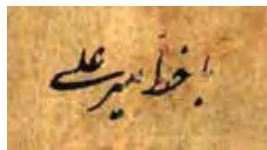 با خط میر علی